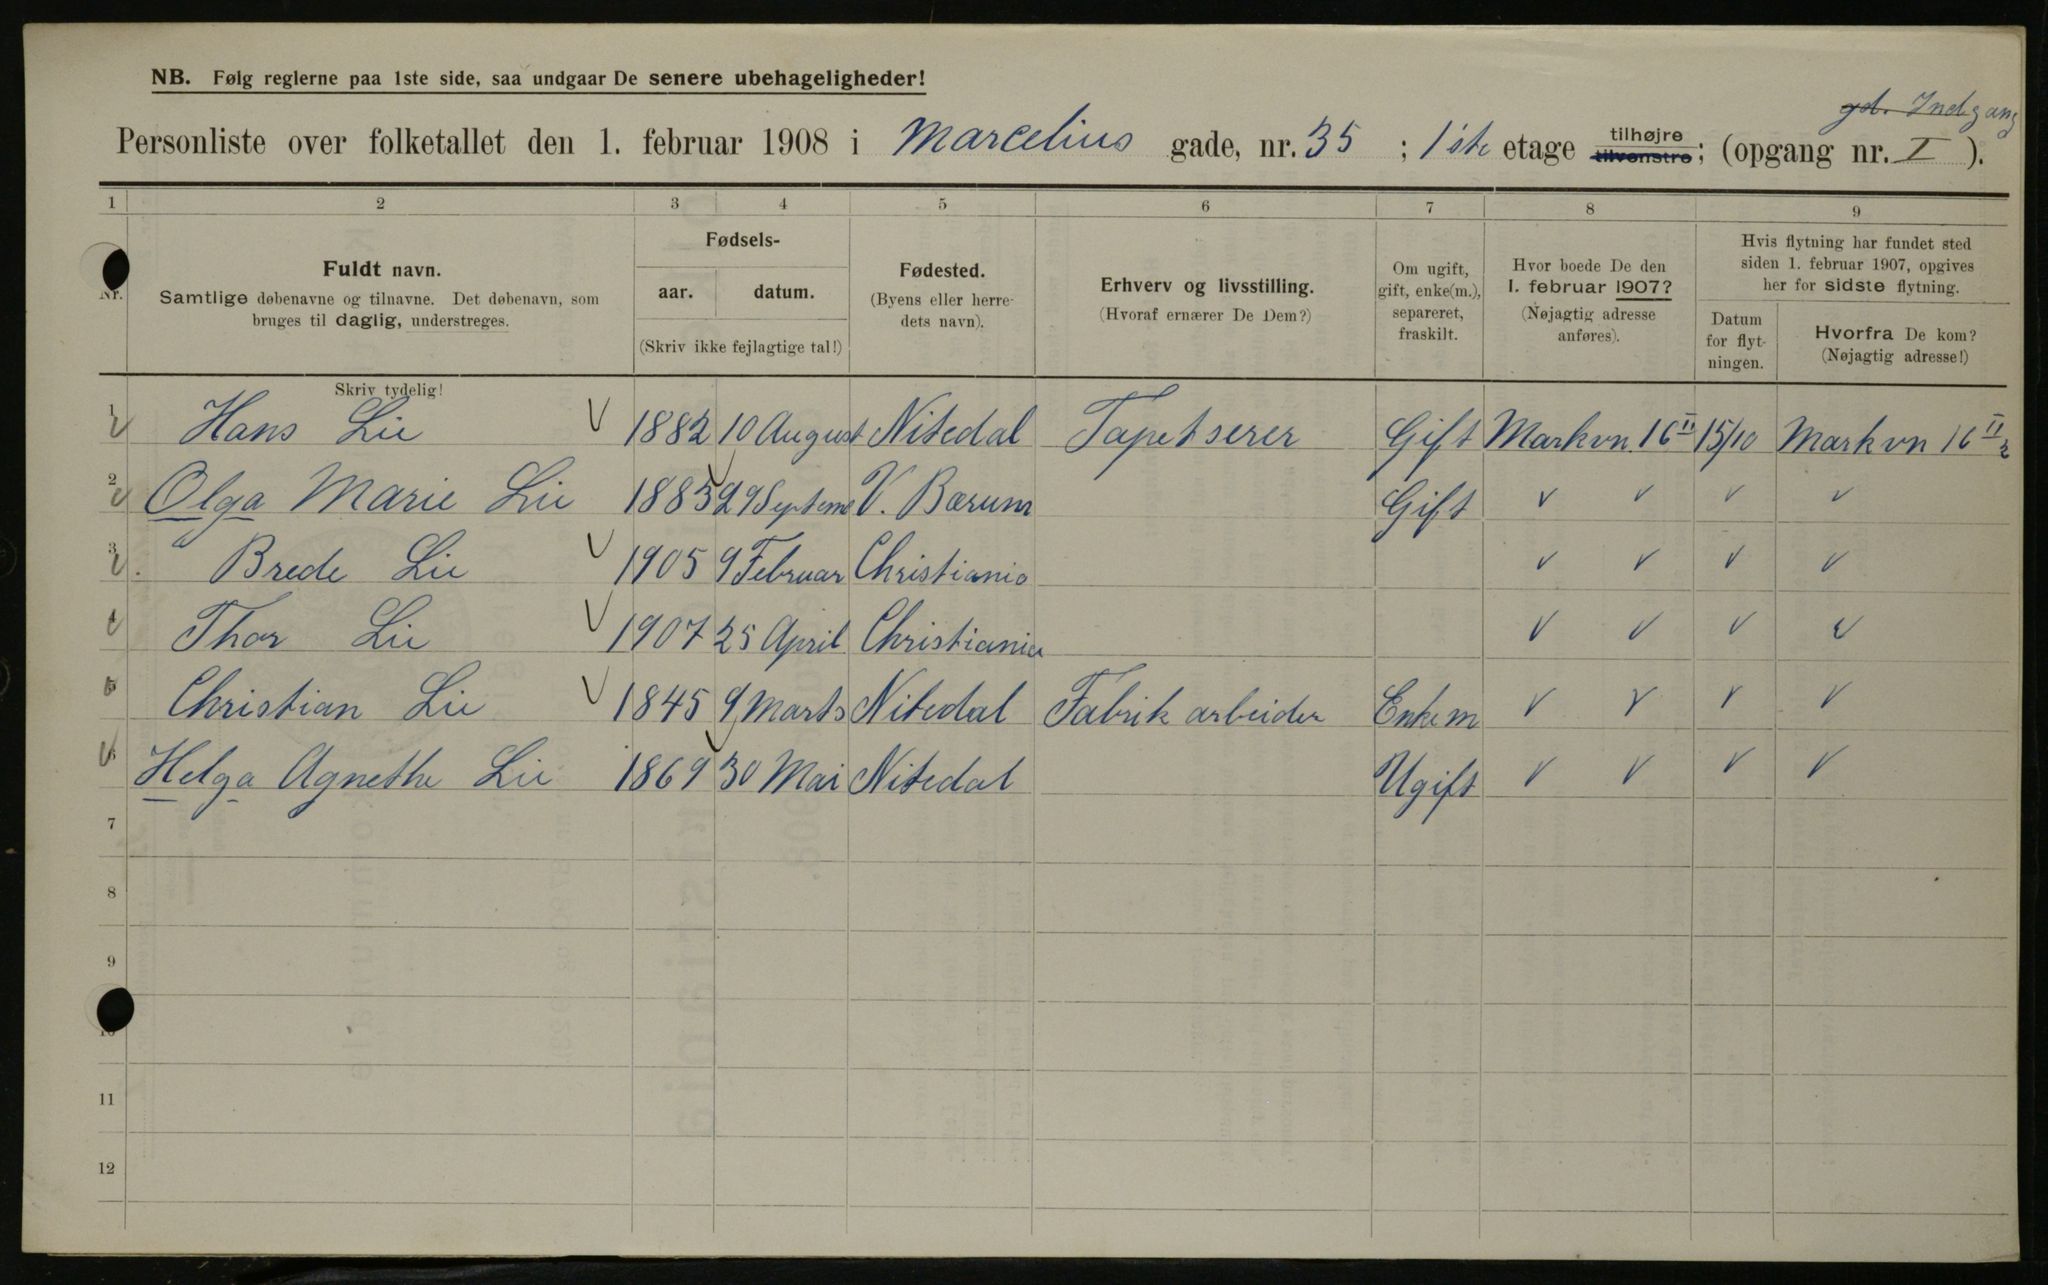 NB. Følg reglerne paa 1ste side, saa undgaar De senere ubehageligheder!
gd. Indgang
Personliste over folketallet den 1. februar 1908 i Marcelius gade, nr. 35 ; 1ste etage tilhøjre tilvenstre; (opgang nr. I ).
1 2 3 4 5 6 7 8 9
Nr.
Fuldt navn.
Samtlige døbenavne og tilnavne. Det døbenavn, som
bruges til daglig, understreges.
Skriv tydelig!
Fødsels-
aar. datum.
(Skriv ikke fejlagtige tal!)
Fødested.
(Byens eller herre-
dets navn).
Erhverv og livsstilling.
(Hvoraf ernærer De Dem?)
Om ugift,
gift, enke(m.),
separeret,
fraskilt.
Hvor boede De den
1. februar 1907?
(Nøjagtig adresse
anføres).
Hvis flytning har fundet sted
siden 1. februar 1907, opgives
her for sidste flytning.
Datum
for flyt-
ningen.
Hvorfra De kom?
(Nøjagtig adresse!)
1 Hans Lie 1882 10 August Nitedal Tapetserer Gift Markvn. 16 II 15/10 Markvn 16 II
2 Olga Marie Lie 1883 29 Septembe V. Bærum Gift
3 Brede Lie 1905 9 Februar Christiania
4 Thor Lie 1907 25 April Christiania
5 Christian Lie 1845 9 Marts Nitedal Fabrik arbeider Enkem
6 Helga Agnethe Lie 1869 30 Mai Nitedal Ugift
7
8
9
10
11
12